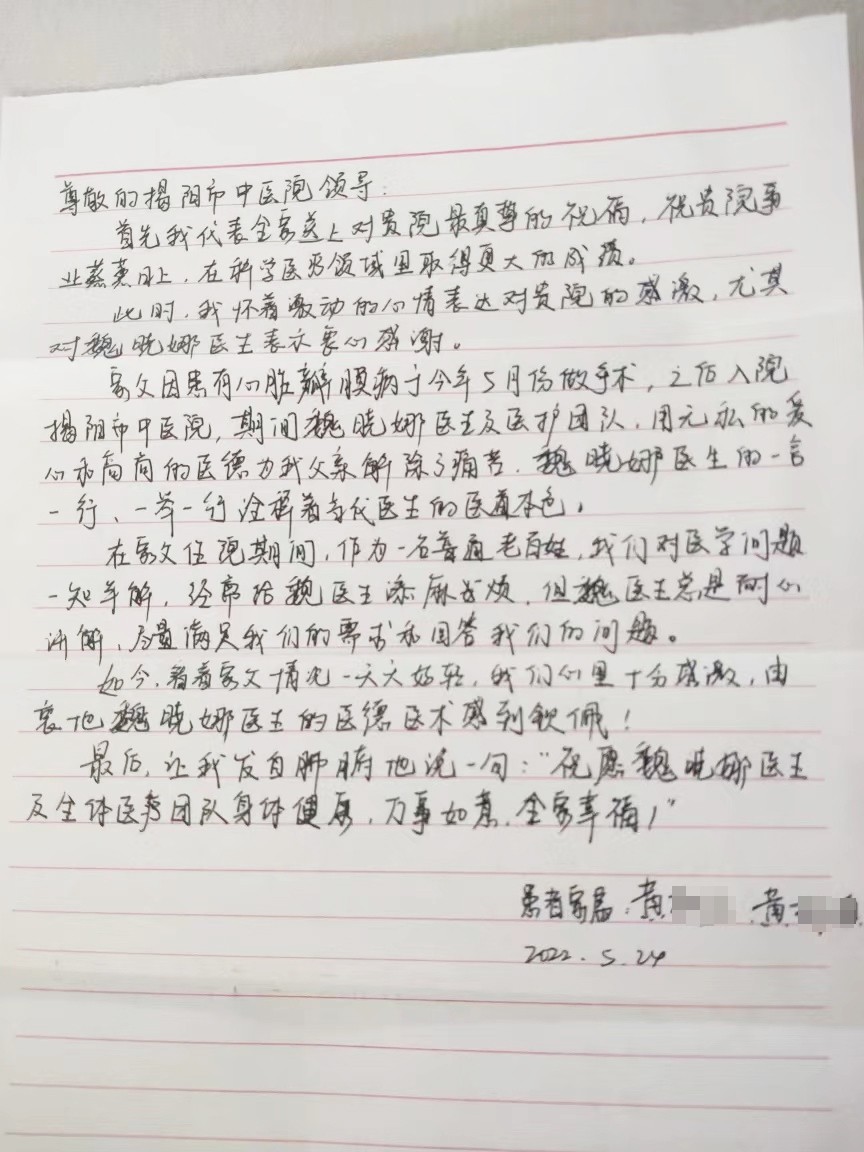 尊敬的揭阳市中医院领导：
首先我代表全家送上对贵院最真挚的祝福，祝贵院事
业蒸蒸日上，在科学医疗领域里取得更大的成绩。
此时，我怀着激动的心情表达对贵院的感激，尤其
对魏晓娜医生表示衷心感谢。
家父因患有心脏瓣膜病于今年5月份做手术，之后入院
揭阳市中医院，期间魏晓娜医生及医护团队，用无私的爱
心和高尚的医德为我父亲解除了痛苦，魏晓娜医生的一言
一行、一举一行诠释着当代医生的医者本色。
在家父住院期间，作为一名普通老百姓，我们对医学问题
一知半解，经常给魏医生添麻烦，但魏医生总是耐心
讲解，尽量满足我们的需求和回答我们的问题。
如今，看着家父情况一天天好转，我们心里十分感激，由
衷地魏晓娜医生的医德医术感到钦佩！
最后，让我发自肺腑地说一句："祝愿魏晓娜医生
及全体医疗团队身体健康，万事如意，全家幸福！"
患者家属：黄 黄
2022.5.24